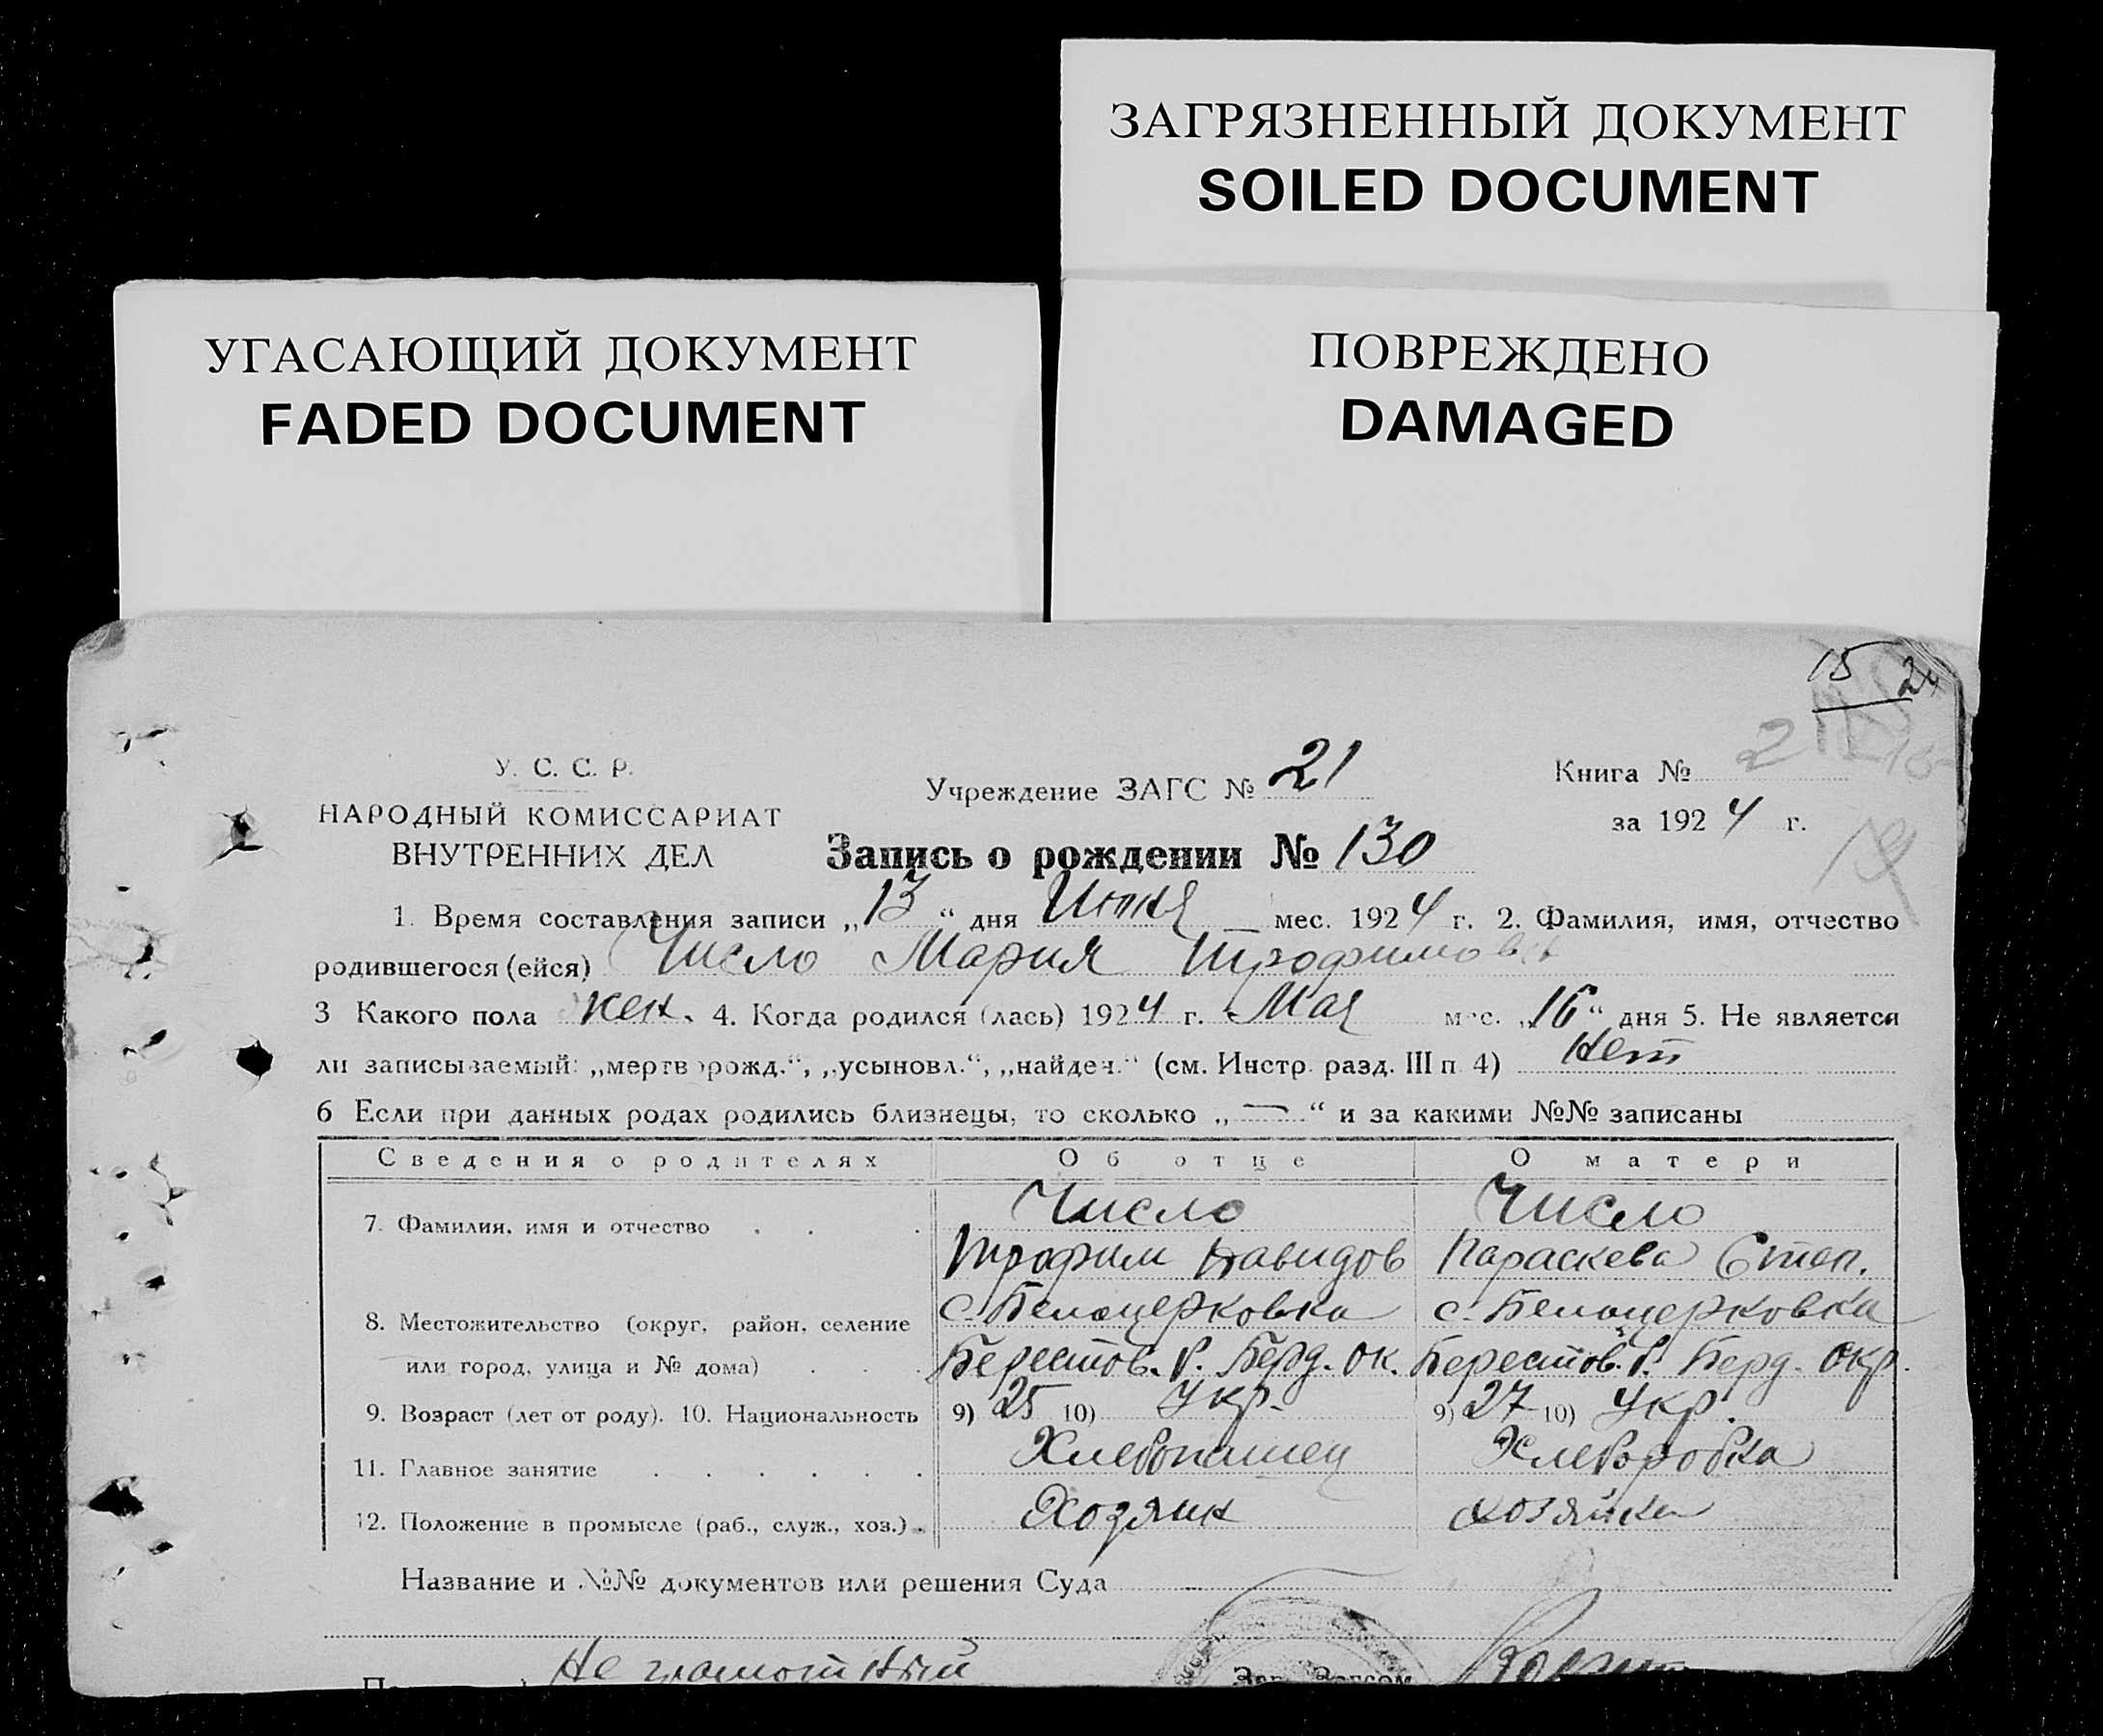 ЗАГРЯЗНЕННЫЙ ДОКУМЕНТ
SOILED DOCUMENT
УГАСАЮЩИЙ ДОКУМЕНТ
FADED DOCUMENT
ПОВРЕЖДЕНО
DAMAGED
15
У. С. С. Р.
НАРОДНЫЙ КОМИССАРИАТ
ВНУТРЕННИХ ДЕЛ
Учреждение ЗАГС № 21
Книга № 2
за 1924 г.
Запись о рождении № 130
1. Время составления записи „13“ дня Июня мес. 1924 г. 2. Фамилия, имя, отчество
родившегося (ейся) Число Мария Трофимов
3 Какого пола жен. 4. Когда родился (лась) 1924 г. Мая мес. „16“ дня 5. Не является
ли записываемый: „мертворожд.“, „усыновл.“, „найден.“ (см. Инстр. разд. III п 4) Нет
6 Если при данных родах родились близнецы, то сколько „—“ и за какими №№ записаны
Сведения о родителях Об отце О матери
7. Фамилия, имя и отчество Число Число
Трофим Давидов Параскева Степ.
8. Местожительство (округ, район, селение с. Белоцерковка с. Белоцерковка
или город, улица и № дома) Берестов. Р. Берд. ок. Берестов. Р. Берд. Окр.
9. Возраст (лет от роду). 10. Национальность 9) 25 10) Укр. 9) 27 10) Укр.
11. Главное занятие Хлебопашец Хлеборобка
12. Положение в промысле (раб., служ., хоз.) Хозяин хозяйка
Название и №№ документов или решения Суда
Не грамотный Зав. Загсом